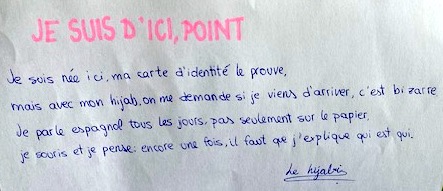 JE SUIS D'ICI, POINT
Je suis née ici, ma carte d'identité le prouve,
mais avec mon hijab, on me demande si je viens d'arriver, c'est bizarre
Je parle espagnol tous les jours, pas seulement sur le papier,
je souris et je pense: encore une fois, il faut que j'explique qui est qui.
Le hijabi